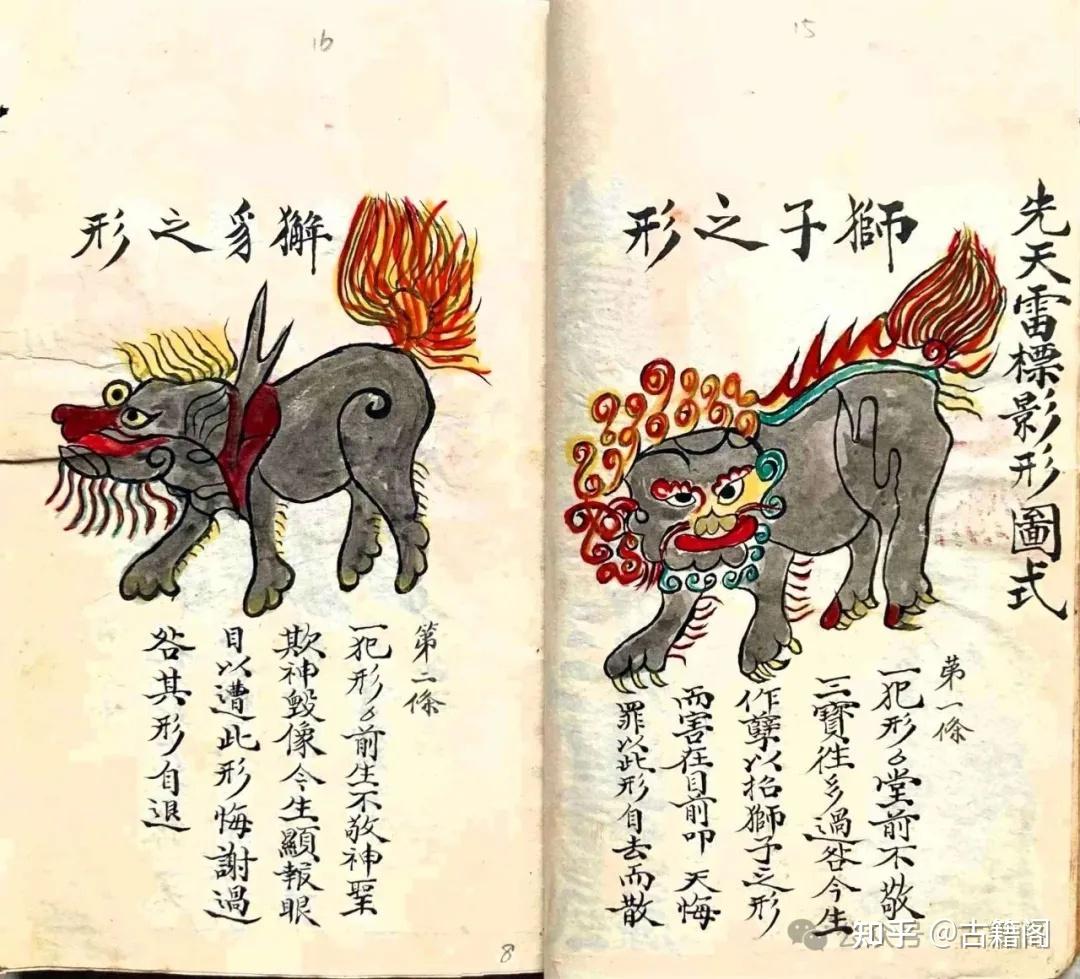 15
先天雷標影形圖式
獅子之形
第一條
一犯形〻堂前不敬
三寶往多過咎今生
作孽以招獅子之形
而害在目前叩 天悔
罪以此形自去而散
16
獬豸之形
第二條
一犯形〻前生不敬神聖
欺神毀像今生顯報眼
目以遭此形悔謝過
咎其形自退
8
知乎 @古籍阁